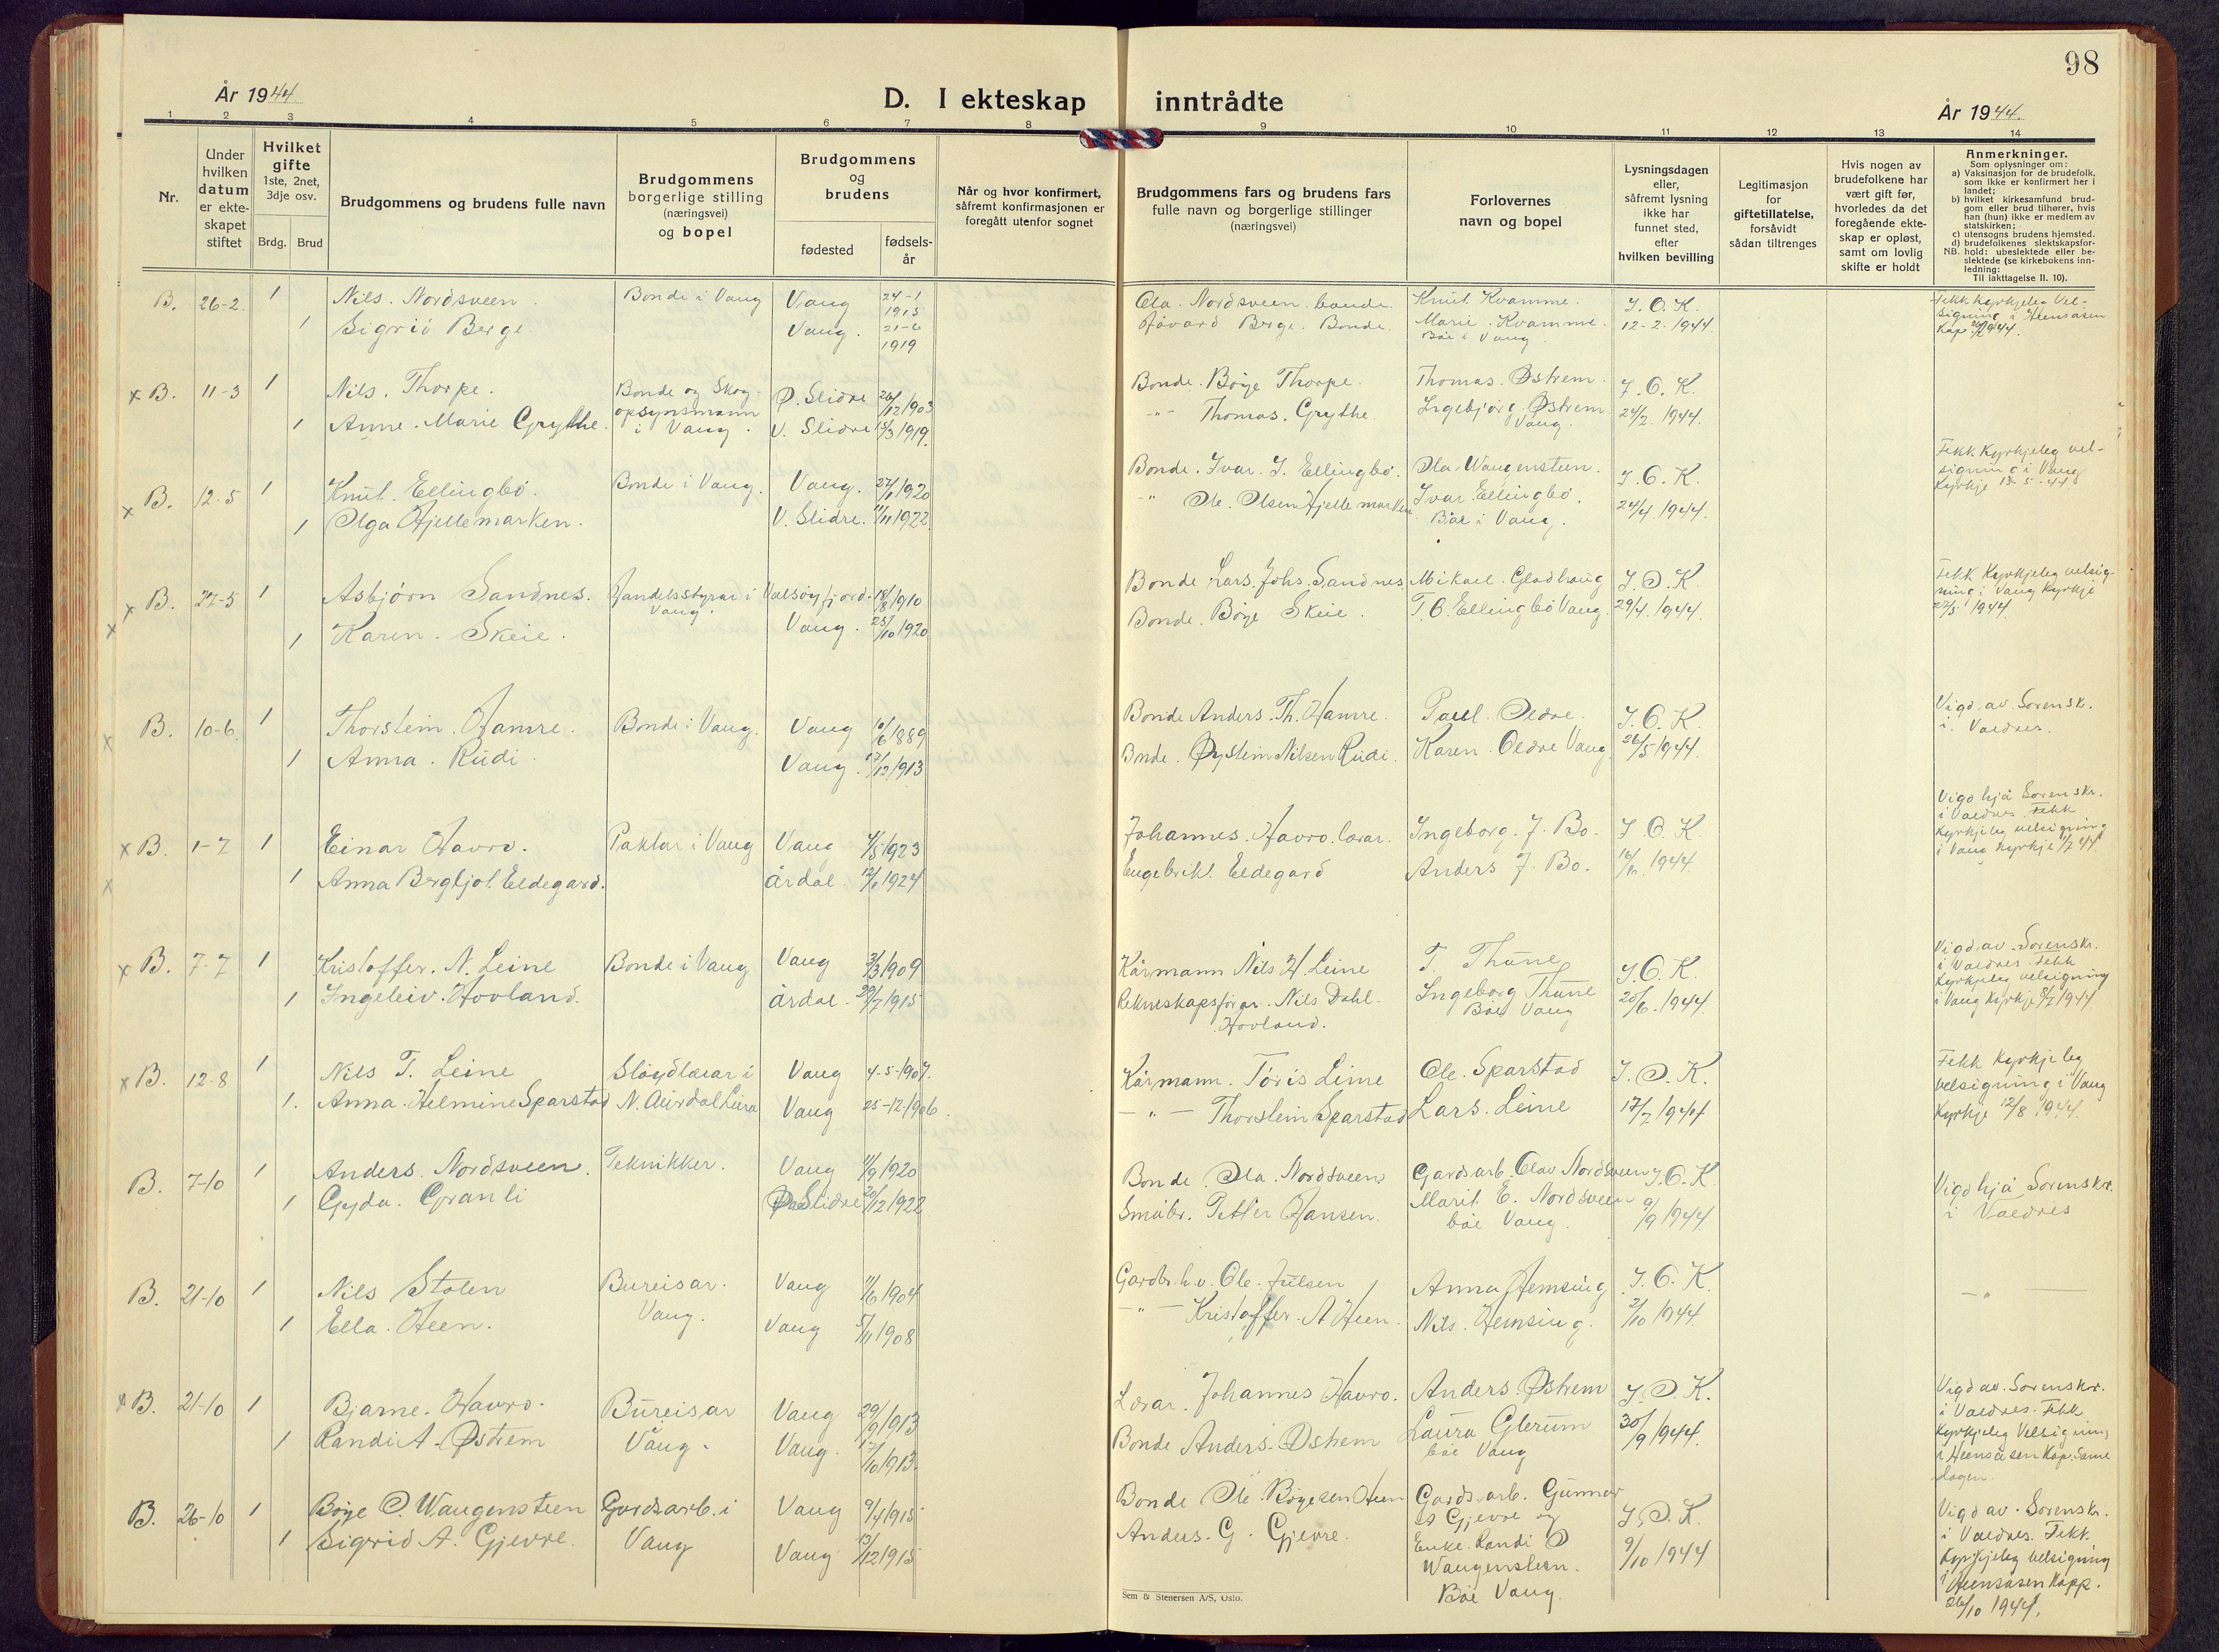 98
År 1944.
D. I ekteskap inntrådte
År 1944.
1 2 3 4 5 6 7 8 9 10 11 12 13 14
Nr.
Under hvilken datum er ekte-skapet stiftet
Hvilket gifte
1ste, 2net, 3dje osv.
Brdg. Brud
Brudgommens og brudens fulle navn
Brudgommens borgerlige stilling (næringsvei) og bopel
Brudgommens og brudens
fødested
fødsels-år
Når og hvor konfirmert, såfremt konfirmasjonen er foregått utenfor sognet
Brudgommens fars og brudens fars fulle navn og borgerlige stillinger (næringsvei)
Forlovernes navn og bopel
Lysningsdagen eller, såfremt lysning ikke har funnet sted, efter hvilken bevilling
Legitimasjon for giftetillatelse, forsåvidt sådan tiltrenges
Hvis nogen av brudefolkene har vært gift før, hvorledes da det foregående ekte-skap er opløst, samt om lovlig skifte er holdt
Anmerkninger.
Som oplysninger om:
a) Vaksinasjon for de brudefolk, som ikke er konfirmert her i landet;
b) hvilket kirkesamfund brud-gom eller brud tilhører, hvis han (hun) ikke er medlem av statskirken;
c) utensogns brudens hjemsted.
d) brudefolkenes slektskapsfor-
NB. hold: ubeslektede eller be-slektede (se kirkebokens inn-ledning:
Til iakttagelse II. 10).
B. 26-2 1 Nils. Nordsveen. Bonde i Vang Vang 24-1 1915 Ola. Nordsveen. bonde. Knut Kvamme. J. O. K. Fekk kyrkjeleg Vel-
1 Sigrid Berge. Vang. 21-6 1919 Håvard Berge. Bonde. Marie. Kvamme. 12-2. 1944. signing i Heensåsen
Båe i Vang. Kap. 1944.
x B. 11-3 1 Nils. Thorpe. Bonde og Skog- Ø. Slidre 26/12 1903 Bonde. Böye Thorpe. Thomas. Østrem. J. O. K.
1 Anne. Marie Grythe. opsynsmann i Vang. V. Slidre 15/3 1919. -"- Thomas. Grythe. Ingebjørg. Østrem. Vang. 24/2. 1944.
x B. 12-5 1 Knut. Ellingbö. Bonde i Vang. Vang. 27/1 1920 Bonde. Ivar. I. Ellingbö. Ola. Wangensteen. J. O. K. Fekk Kyrkjeleg vel-
1 Olga Hjellemarken. V. Slidre. 11/11 1922. -"- Ole. Olsen Hjellemarken Ivar Ellingbö. 24/4. 1944. signing i Vang
Båe i Vang. Kyrkje 13-5-44
x B. 27-5 1 Asbjørn Sandnes. Handelsstyrar i Vang. Valsøyfjord. 18/8 1910 Bonde Lars. Johs. Sandnes Mikael. Gladhaug J. O. K. Fekk Kyrkjeleg velsig-
x 1 Karen. Skeie. Vang. 25/10 1920 Bonde. Böye Skeie. T. O. Ellingbö Vang. 29/4. 1944. ning i Vang Kyrkje
27/5 1944.
x B. 10-6 1 Thorstein. Hamre. Bonde i Vang. Vang 10/6 1889 Bonde Anders. Th. Hamre. Paul. Oldre. J. O. K. Vigd. av. Sorensk.
1 Anna. Rudi. Vang. 17/12 1913 Bnde. Øystein Nilsen Rudi. Karen. Oldre Vang. 26/5 1944. i. Valdres.
x B. 1-7 1 Einar Havro. Paktar i Vang Vang 4/5 1923 Johannes. Havro. lærar. Ingeborg. J. Bo. J. O. K. Vigd hjå Sorenskr.
x 1 Anna Bergljot Eldegard. Årdal. 1924 Engebrikt. Eldegard Anders J. Bo. 16/6. 1944. i Valdres. Fekk
Kyrkjeleg velsigning
i Vang Kyrkje 1/7 44
x B. 7-7 1 Kristoffer. N. Leine Bonde i Vang Vang 3/3 1909 Kårmann Nils K Leine T. Thune J. O. K. Vigd. av. Sorenskr.
1 Ingeleiv. Hovland. Årdal. 29/7 1915 Rekneskapsförar. Nils Dahl. Hovland. Ingeborg Thune Båe Vang 20/6. 1944. i Valdres. Fekk
Kyrkjeleg velsigning
i Vang Kyrkje 8/7 1944
x B. 12-8 1 Nils T. Leine Slöydlærar i Vang 4-5-1907. Kårmann. Töris Leine Ole. Sparstad J. O. K. Fekk Kyrkjeleg
1. Anna. Helmine Sparstad N. Aurdal Leira Vang 25-12-1906. -"- Thorstein Sparstad Lars. Leine 17/7 1944 velsigning i Vang
Kyrkje 12/8 1944.
B. 7-10 1 Anders. Nordsveen. Teknikker. Vang 11/9 1920 Bonde. Ola. Nordsveen Gardsarb. Olav Nordsveen J. O. K. Vigd hjå Sorenskr.
1 Gyda. Granli Slidre 20/12 1922 Småbr. Petter Hansen. Marit E. Nordsveen båe Vang. 9/9 1944 i Valdres
B. 21-10 1 Nils Stolen Bureisar. Vang 11/6 1904 Gardbr. h.v. Ole. Julsen Anna Hemsing J. O. K. -"-
1 Ella. Heen. Vang. Vang 5/11 1908 -"- Kristoffer. A Heen. Nils. Hemsing. 2/10 1944.
x B. 21-10 1 Bjarne. Havro. Bureisar Vang 29/9 1913 Lærar. Johannes Havro. Anders. Østrem J. O. K. Vigd av. Sorenskr.
1 Randi A. Østrem Vang. Vang. 17/10 1913. Bonde Anders. Østrem Laura Glerum 30/9 1944. i Valdres. Fekk
båe Vang Kyrkjeleg Velsigning
i Heensåsen Kap. Same
dagen.
B. 26-10 1 Böye O. Wangensteen Gardsarb. i Vang 9/4 1915 Bonde Ole Bøyesen Heen Gardsarb. Gunnar J. O. K. Vigd av. Sorenskr.
1 Sigrid A. Gjevre. Vang Vang 13/12 1915 Anders. G. Gjevre. Gjevre og 9/10 1944 i Valdres. Fekk.
Enke. Randi O Kyrkjeleg velsigning
Wangensteen. i Heensåsen Kapp.
Båe Vang. 26/10 1944.
Sem & Stenersen A/S, Oslo.